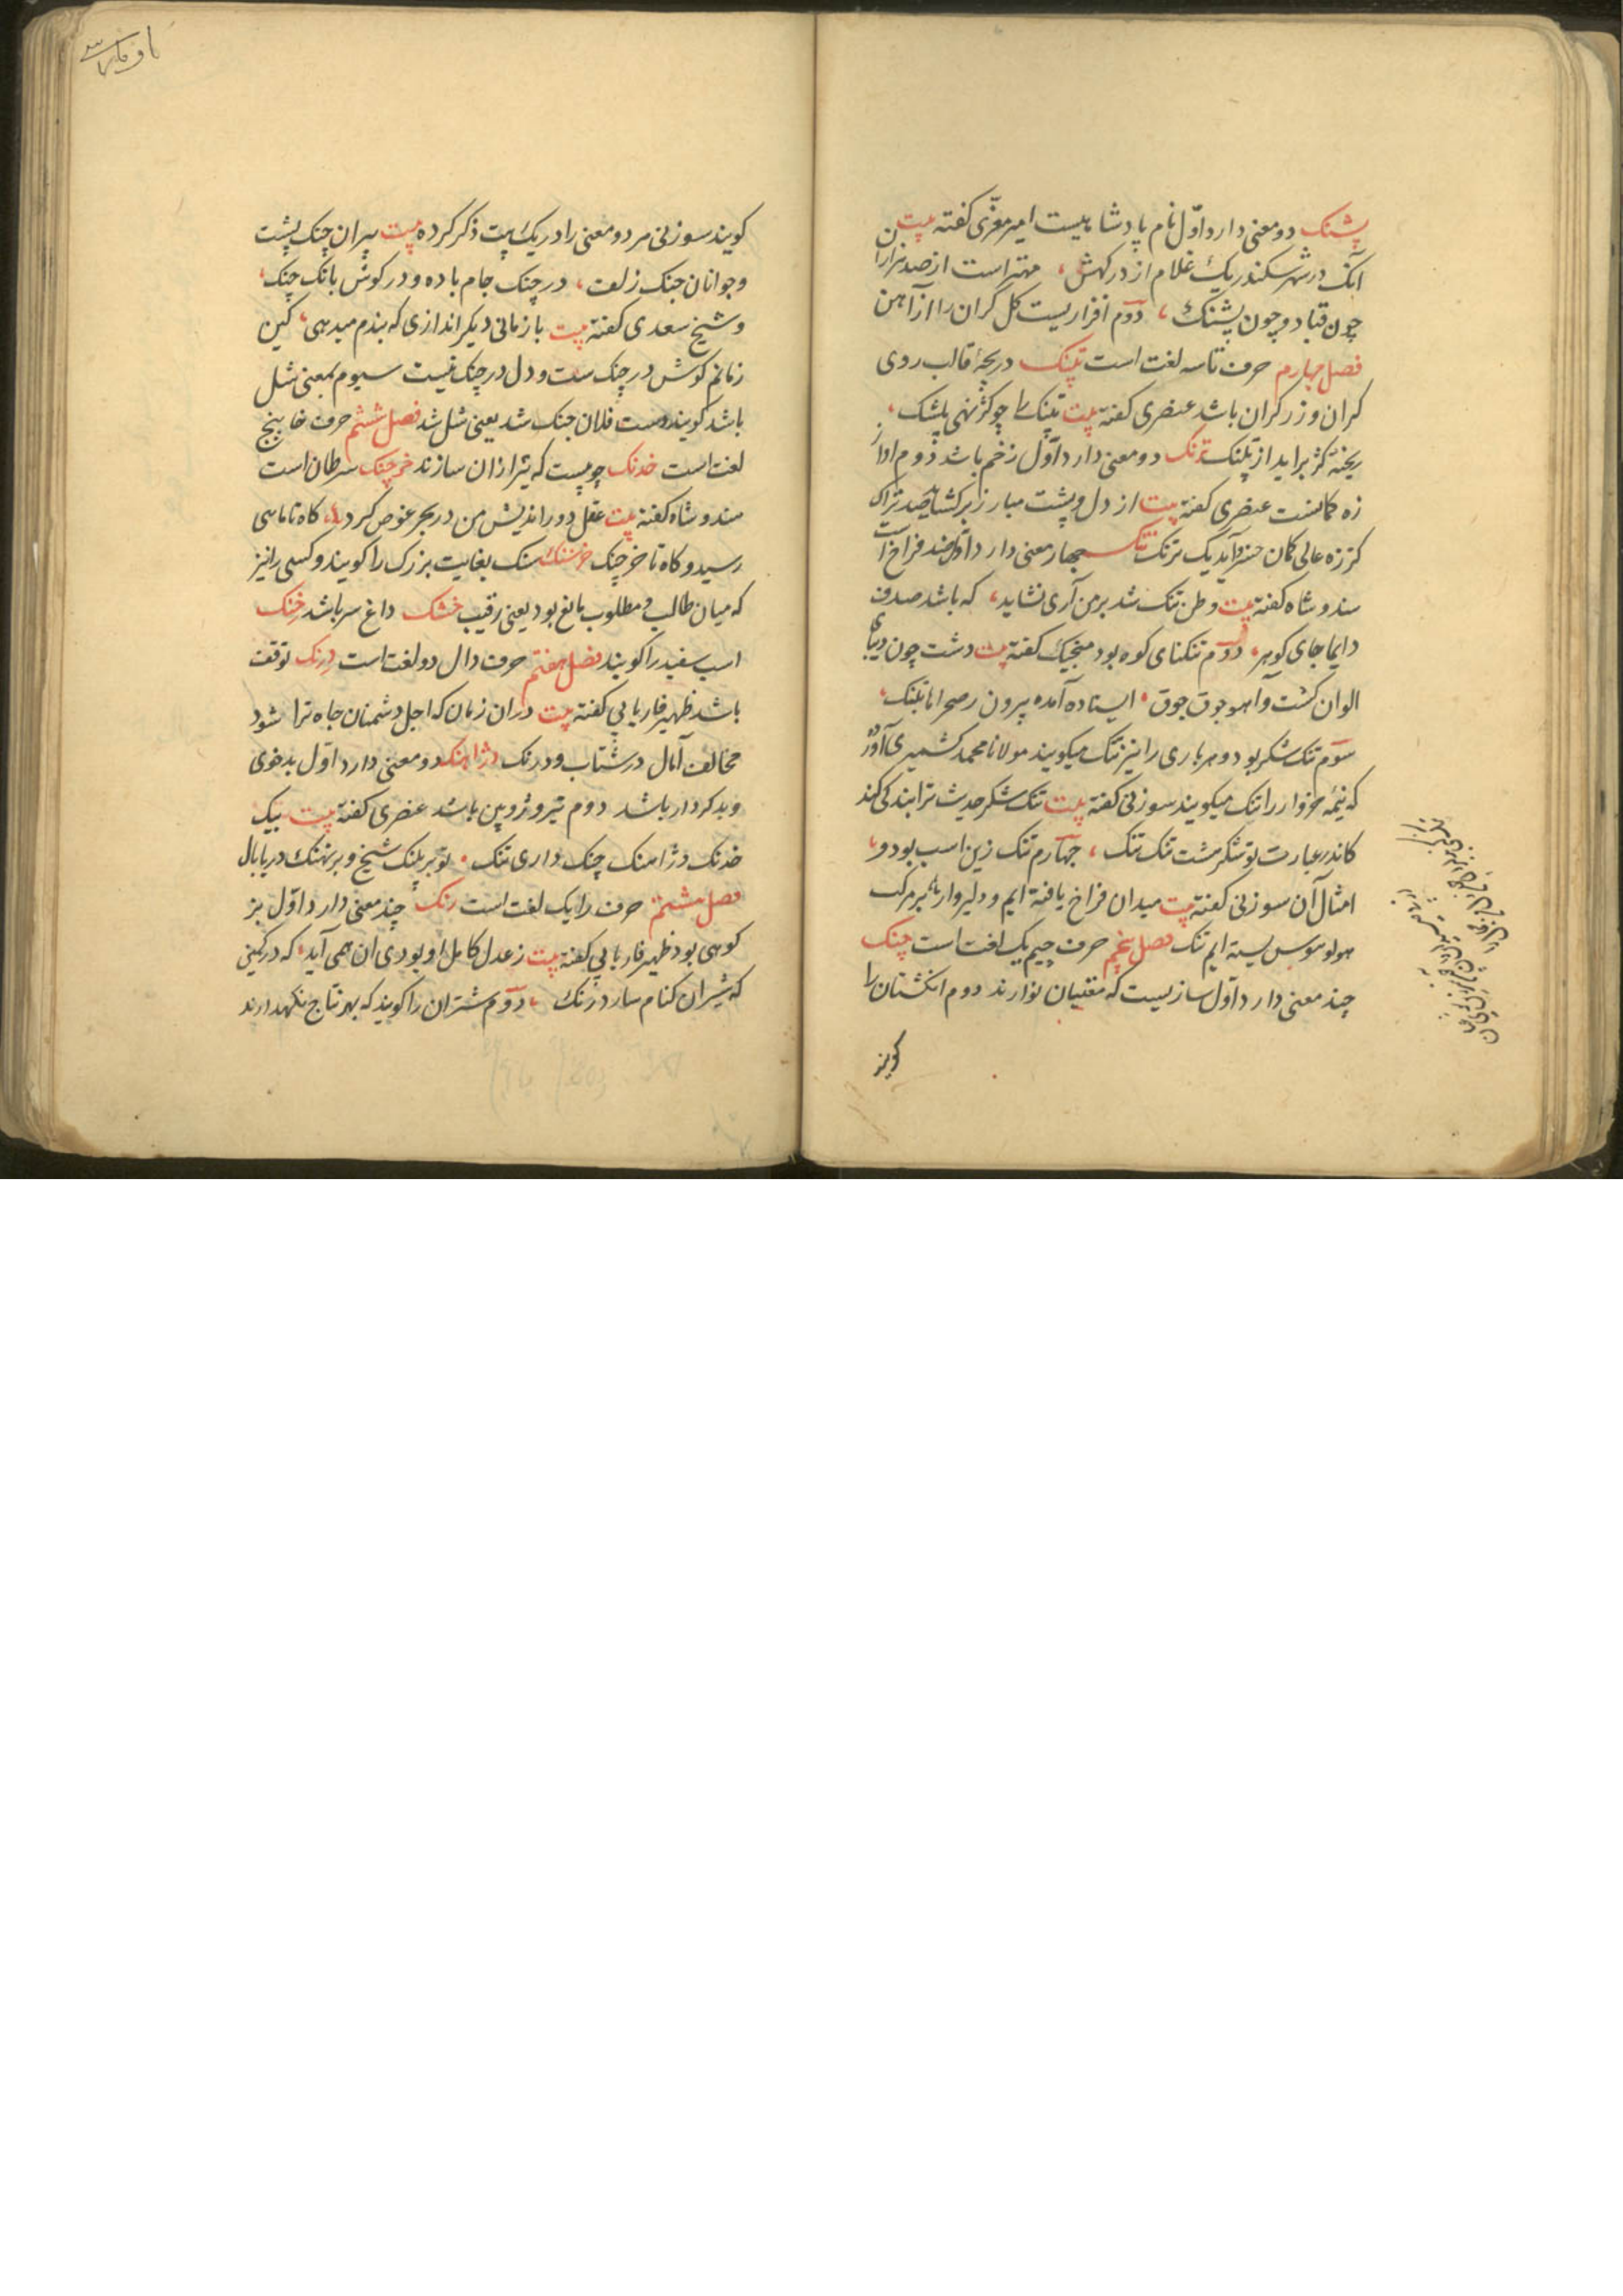 پشنک دو معنی دارد اوّل نام پادشاهیست امیر معزّی کفته بیت
آنک در شهر سکندر یک غلام از درکهش، مهتر است از صد هزاران
چون قباد و چون پشنک، دوم افزاریست کل کران را از آهن
فصل چهارم حرف تا سه لغت است تپنک دریچهٔ قالب روی
کران و زرکران باشد عنصری کفته بیت تپنک را چو کژ نهی بیشک،
ریخته کژ براید از تپنک ترنک دو معنی دارد اول زخم باشد دوم اواز
زه کمانست عنصری کفته بیت از دل و پشت مبارز برکشاید صد تراک
کز زه عالی کمان خسرو آید یک ترنک تنک چهار معنی دارد اول ضد فراخ است
هندوشاه کفته بیت وطن تنک شد بر من آری نشاید، که باشد صدف
دایما جای کوهر، دوم تنکنای کوه بود منجیک کفته بیت دشت چون دیبای
الوان کشت و آهو جوق جوق ایستاده آمده بیرون بصحرا از تنک،
سوم تنک شکر بود و هر باری را نیز تنک میکویند مولانا محمد کشمیری آورده
که نیمه خروار را تنک میکویند سوزنی کفته بیت تنک شکر حدیث ترا بندکی کند
کاندر عبارت تو شکر هست تنک تنک، چهارم تنک زین اسب بود و
امثال آن سوزنی کفته بیت میدان فراخ یافته ایم و دلیروار بر مرکب
هوا و هوس بسته ایم تنک فصل پنجم حرف چیم یک لغت است چنک
چند معنی دارد اول سازیست که مغنیان نوازند دوم انکشتان را
کویند
کویند سوزنی هر دو معنی را در یک بیت ذکر کرده بیت پیران چنک پشت
و جوانان چنک زلف، در چنک جام باده و در کوش بانک چنک،
و شیخ سعدی کفته بیت باز زمانی دیکر اندازی که پندم میدهی، کین
زمانم کوش در چنک ست و دل در چنک نیست سیوم بمعنی شل
باشد کویند دست فلان چنک شد یعنی شل شد فصل ششم حرف خا پنج
لغت است خدنک چوبیست که تیر از آن سازند خرچنک سرطان است
هندوشاه کفته بیت عقل دور اندیش من در بحر غوص کرد، کاه تا ماهی
رسید و کاه تا خرچنک خرسنک سنک بغایت بزرک را کویند و کسی را نیز
که میان طالب و مطلوب مانع بود یعنی رقیب خشنک داغ سر باشد خنک
اسب سفید را کویند فصل هفتم حرف دال دو لغت است درنک توقف
باشد ظهیر فاریابی کفته بیت دران زمان که اجل دشمنان جاه ترا شود
مخالف آمال در شتاب و درنک دژاهنک دو معنی دارد اول بدخوی
و بدکردار باشد دوم تیر و ژوپین باشد عنصری کفته بیت بیک
خدنک دژاهنک چنک داری تنک تو بر پلنک شخ و بر نهنک دریا بال
فصل هشتم حرف را یک لغت است رنک چند معنی دارد اوّل بز
کوهی بود ظهیر فاریابی کفته بیت ز عدل کامل او بود ی ان همی آید، که در کمین
که شیران کنام سازد رنک، دوم شتران را کویند که بهر نتاج نکهدارند